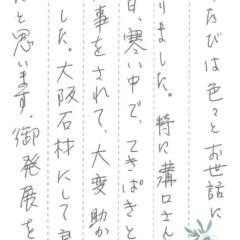 たびは色々とお世話に
りました。特に溝口さん
日、寒い中で、てきぱきと
事をされて、大変助か
した。大阪石材にして良
と思います。御発展を